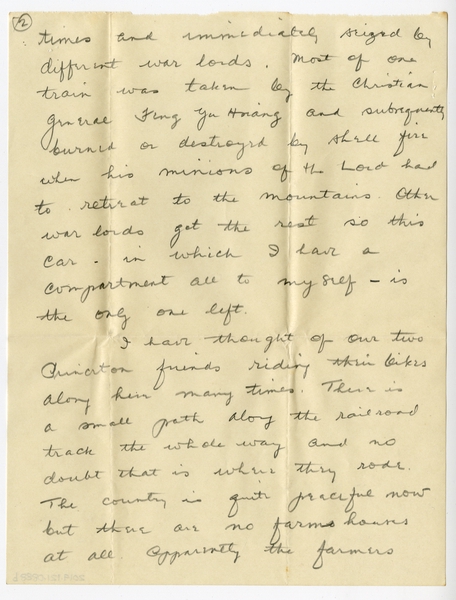 2
times and immediately seized by
different war lords. Most of one
train was taken by the Christian
General Feng Yu Hsiang and subsequently
burned or destroyed by shell fire
when his minions of the Lord had
to retreat to the mountains. Other
war lords got the rest so this
car - in which I have a
compartment all to myself - is
the only one left.
I have thought of our two
Princeton friends riding their bikes
along here many times. There is
a small path along the railroad
track the whole way and no
doubt that is where they rode.
The country is quite peaceful now
but there are no farm houses
at all. Apparently the farmers